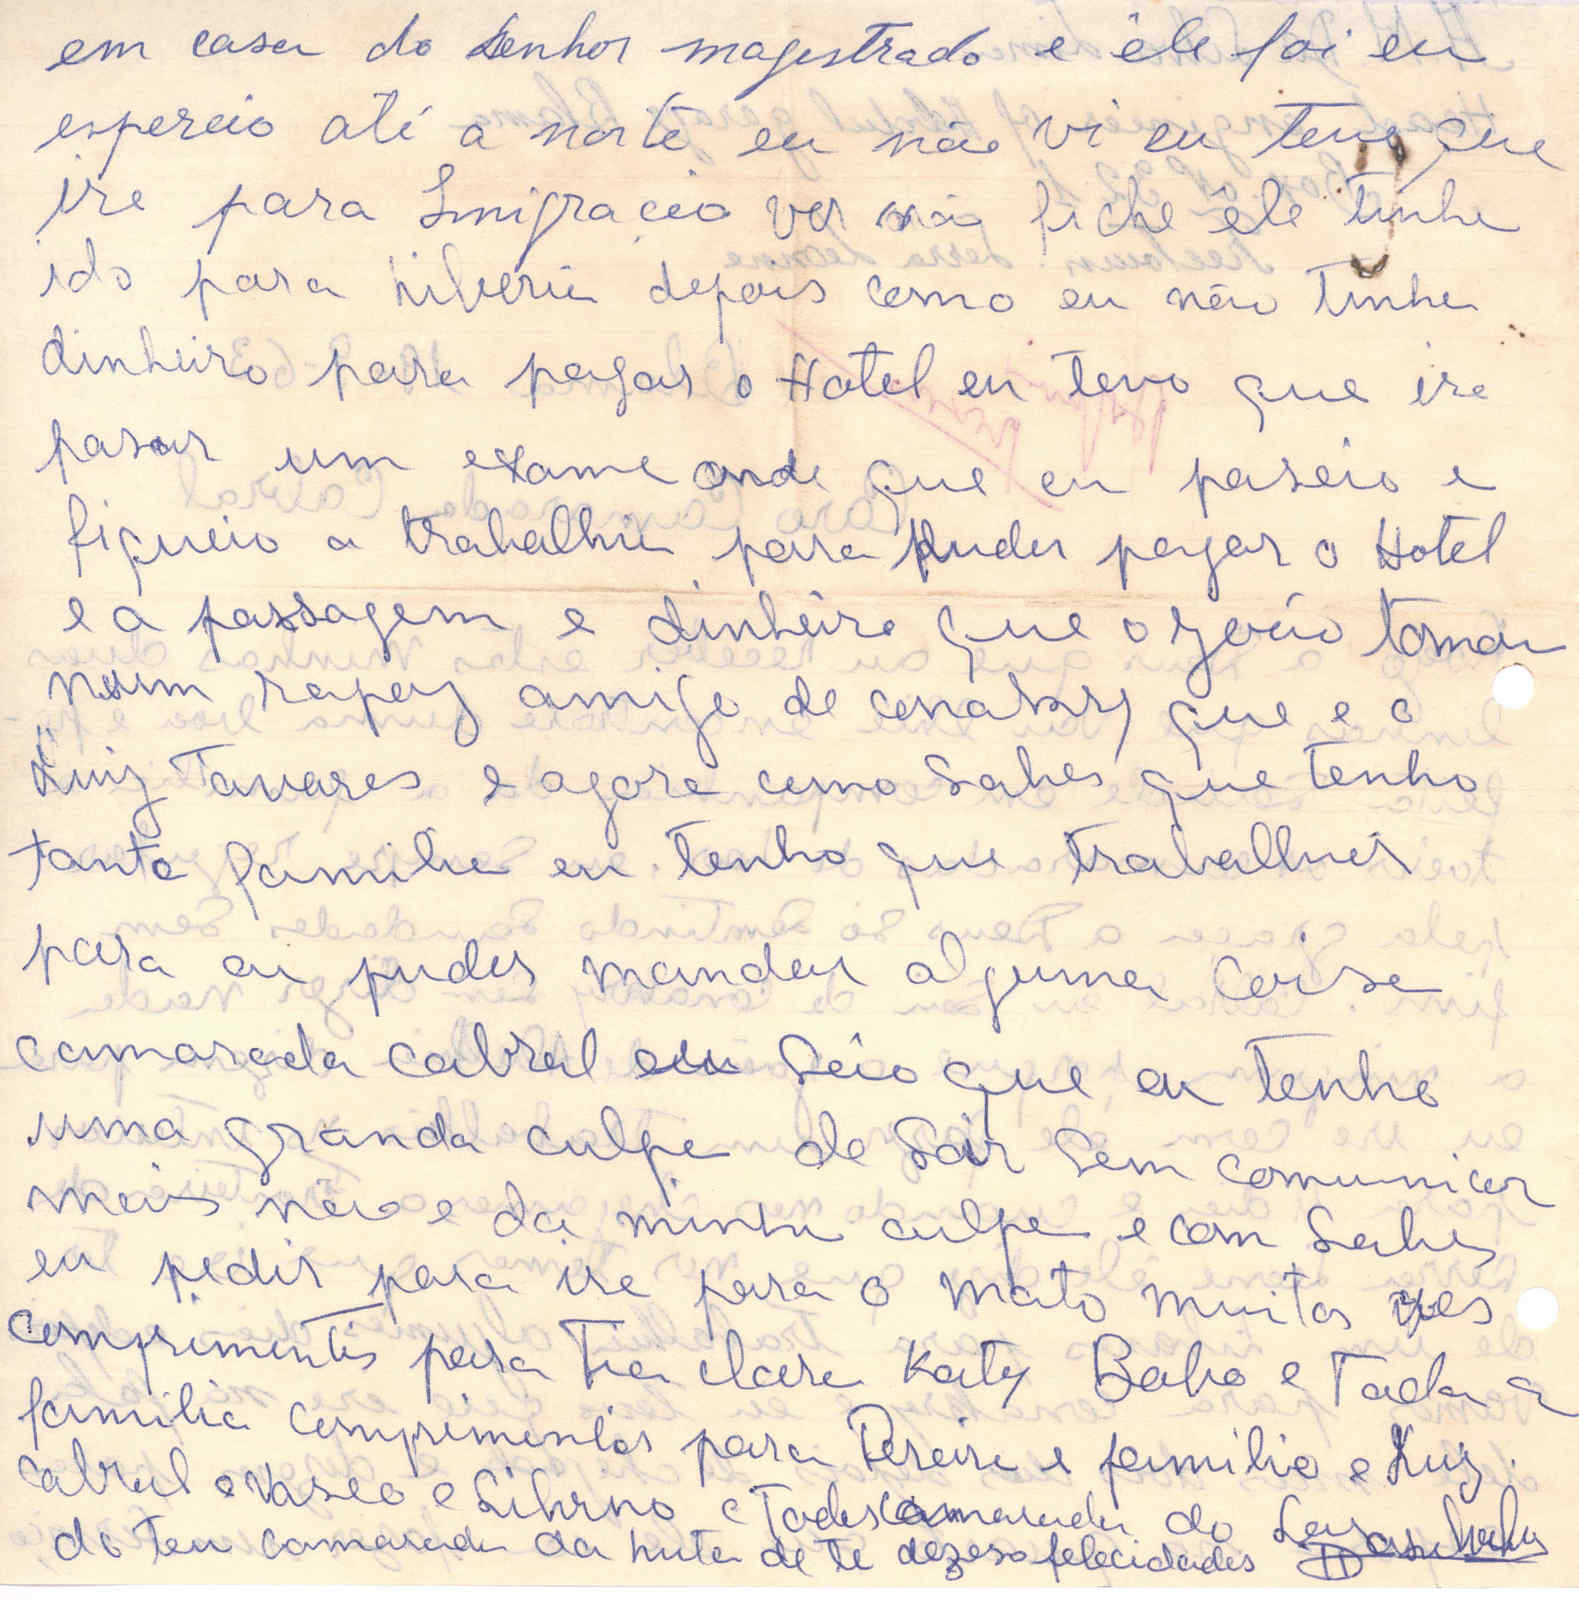 em casa do Senhor magestrado e êle foi eu
espereio até a norte eu não vi eu tevo que
ire para Imigração ver na fiche êle tinha
ido para Liberia depois como eu não tinha
dinheiro para pagar o Hotel eu tevo que ire
pasar um exame onde que eu paseio e
fiqueio a trabalhar para puder pagar o Hotel
e a passagem e dinheiro que o João tomou
num rapaz amigo de conakry que e o
Luiz Tavares e agora como Sabes que tenho
tanta familia eu tenho que trabalhar
para eu puder mandar alguma coisa
camarada cabral eu Seio que eu tenho
uma granda culpa de Sair Sem comunicar
mais não e da minha culpa e com Sabes
eu pedir para ire para o mato muitas ves
comprimentos para Tia clara Katy Baho e Toda a
familia comprimentos para Pereira e familia e Luiz
cabral e Vasco e Silvino e Todos camarada do
do teu camarada da luta de te dezeso felecidades